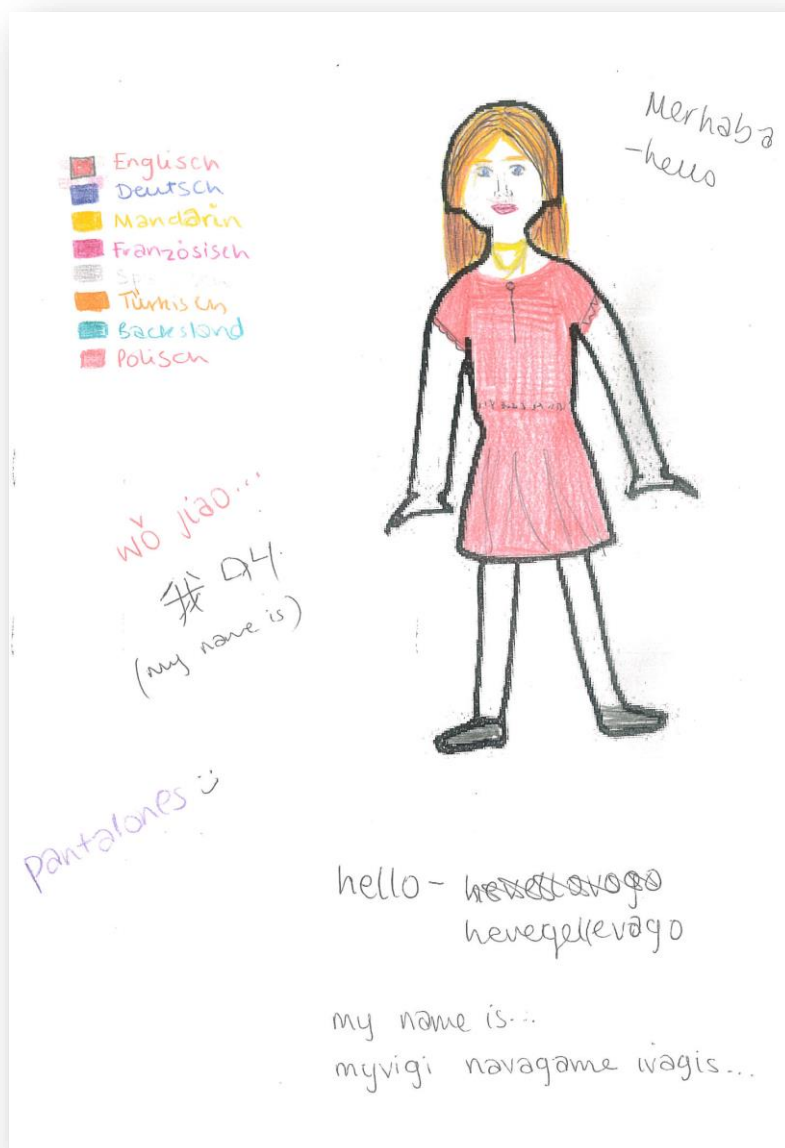 Englisch
Deutsch
Mandarin
Französisch
Türkisch
Backsland
Polisch
Merhaba
-hello
wǒ jiao...
我叫
(my name is)
pantalones
hello -
hevegellevago
my name is...
myvigi navagame ivagis...